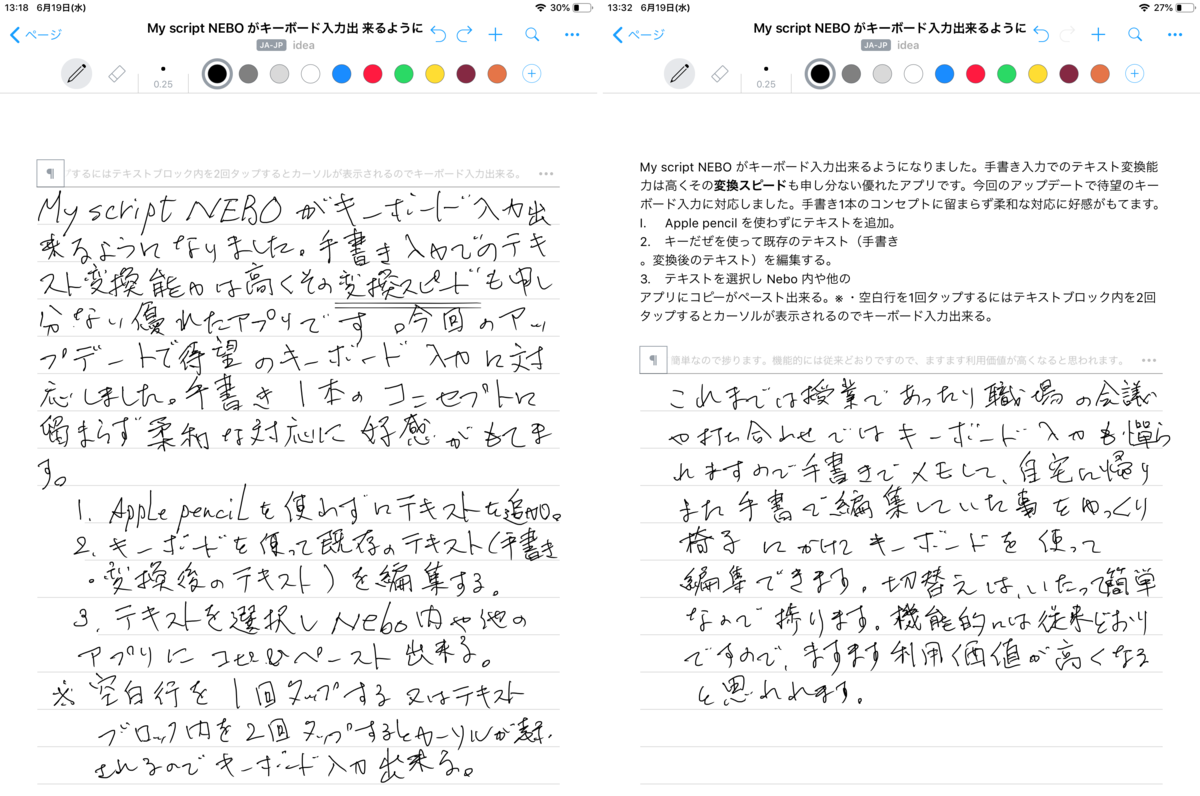 13:18 6月19日(水) 30%
ページ
My script NEBO がキーボード入力出 来るように
JA-JP idea
0.25
するにはテキストブロック内を2回タップするとカーソルが表示されるのでキーボード入力出来る。
My script NEBO がキーボード入力出
来るようになりました。手書き入力でのテキ
スト変換能力は高くその変換スピードも申し
分ない優れたアプリです。今回のアッ
プデートで待望のキーボード入力に対
応しました。手書き1本のコンセプトに
留まらず柔和な対応に好感がもてま
す。
1. Apple pencilを使わずにテキストを追加。
2. キーボードを使って既存のテキスト(手書き
・変換後のテキスト)を編集する。
3. テキストを選択しNebo内や他の
アプリにコピーペースト出来る。
※空白行を1回タップする又はテキスト
ブロック内を2回タップするとカーソルが表示
されるのでキーボード入力出来る。
13:32 6月19日(水) 27%
ページ
My script NEBO がキーボード入力出来るように
JA-JP idea
0.25
My script NEBO がキーボード入力出来るようになりました。手書き入力でのテキスト変換能
力は高くその変換スピードも申し分ない優れたアプリです。今回のアップデートで待望のキー
ボード入力に対応しました。手書き1本のコンセプトに留まらず柔和な対応に好感がもてます。
I. Apple pencil を使わずにテキストを追加。
2. キーだぜを使って既存のテキスト(手書き
。変換後のテキスト)を編集する。
3. テキストを選択し Nebo 内や他の
アプリにコピーがペースト出来る。※・空白行を1回タップするにはテキストブロック内を2回
タップするとカーソルが表示されるのでキーボード入力出来る。
簡単なので捗ります。機能的には従来どおりですので、ますます利用価値が高くなると思われます。
これまでは授業であったり職場の会議
や打ち合わせではキーボード入力も憚ら
れますので手書きでメモして、自宅に帰り
また手書で編集していた事をゆっくり
椅子にかけてキーボードを使って
編集できます。切替えは、いたって簡単
なので捗ります。機能的には従来どおり
ですので、ますます利用価値が高くなる
と思われます。